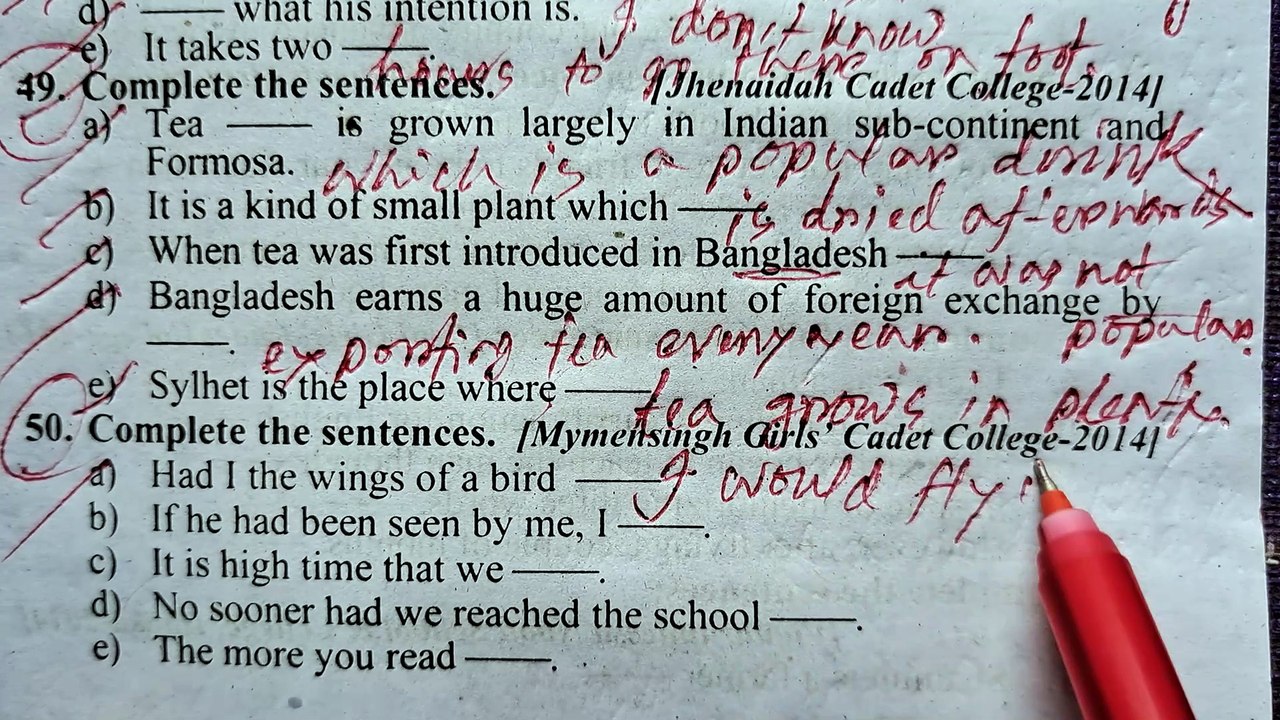 d) —— what his intention is. I don't know
e) It takes two ——. hours to go there on foot.
49. Complete the sentences. [Jhenaidah Cadet College-2014]
a) Tea —— is grown largely in Indian sub-continent and
Formosa. which is a popular drink
b) It is a kind of small plant which —— is dried afterwards
c) When tea was first introduced in Bangladesh —— it was not
d) Bangladesh earns a huge amount of foreign exchange by
——. exporting tea every year. popular.
e) Sylhet is the place where —— tea grows in plenty.
50. Complete the sentences. [Mymensingh Girls' Cadet College-2014]
a) Had I the wings of a bird —— I would fly
b) If he had been seen by me, I ——.
c) It is high time that we ——.
d) No sooner had we reached the school ——.
e) The more you read ——.